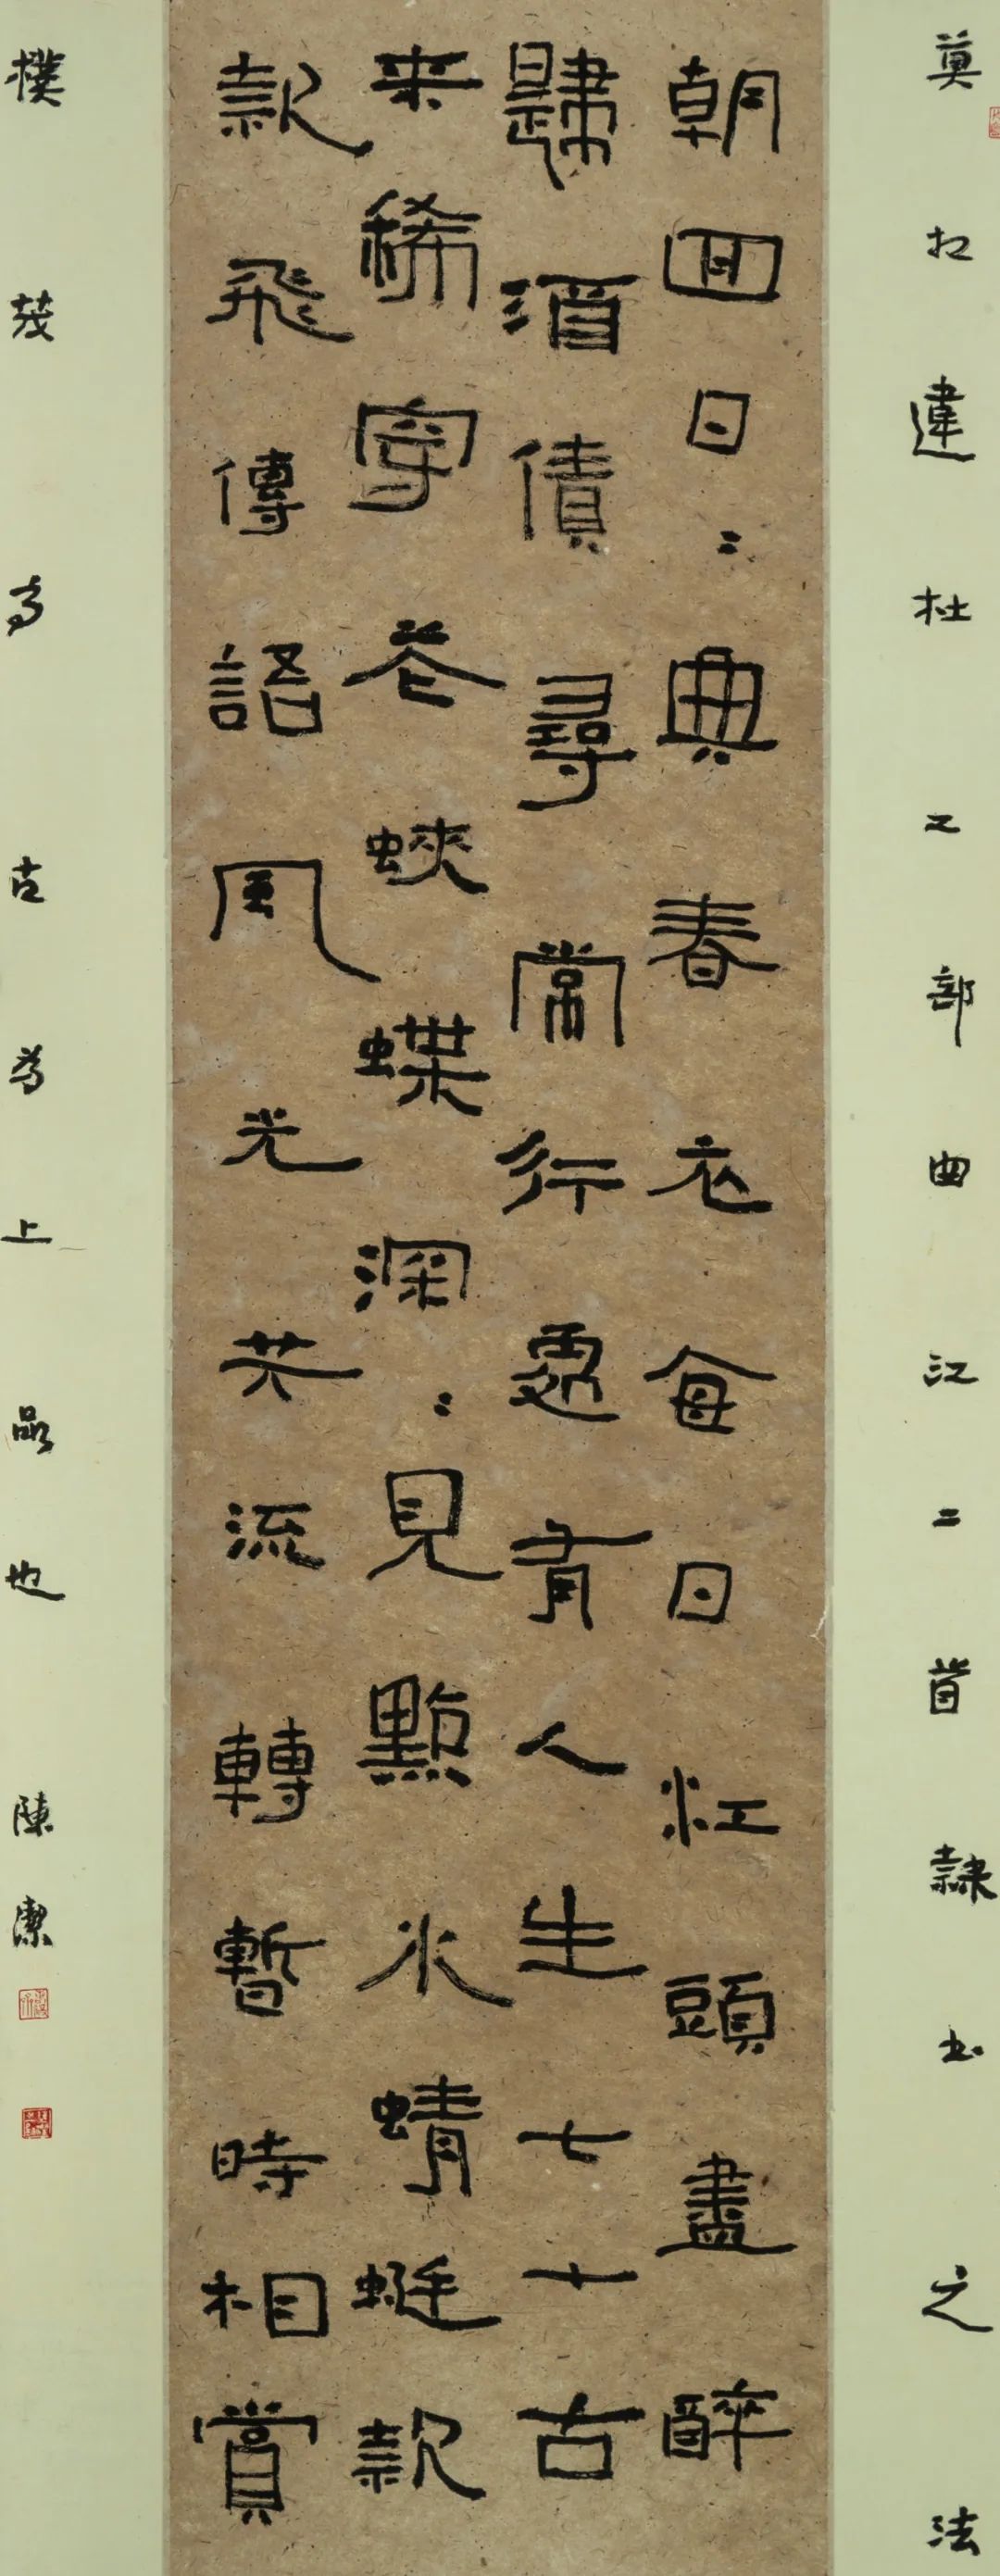 朝回日〻典春衣每日江頭盡醉
歸酒債尋常行處有人生七十古
来稀穿花蛺蝶深〻見點水蜻蜓款
款飛傳語風光共流轉暫時相賞
莫相違杜工部曲江二首隸书之法
樸茂高古为上品也陳潔